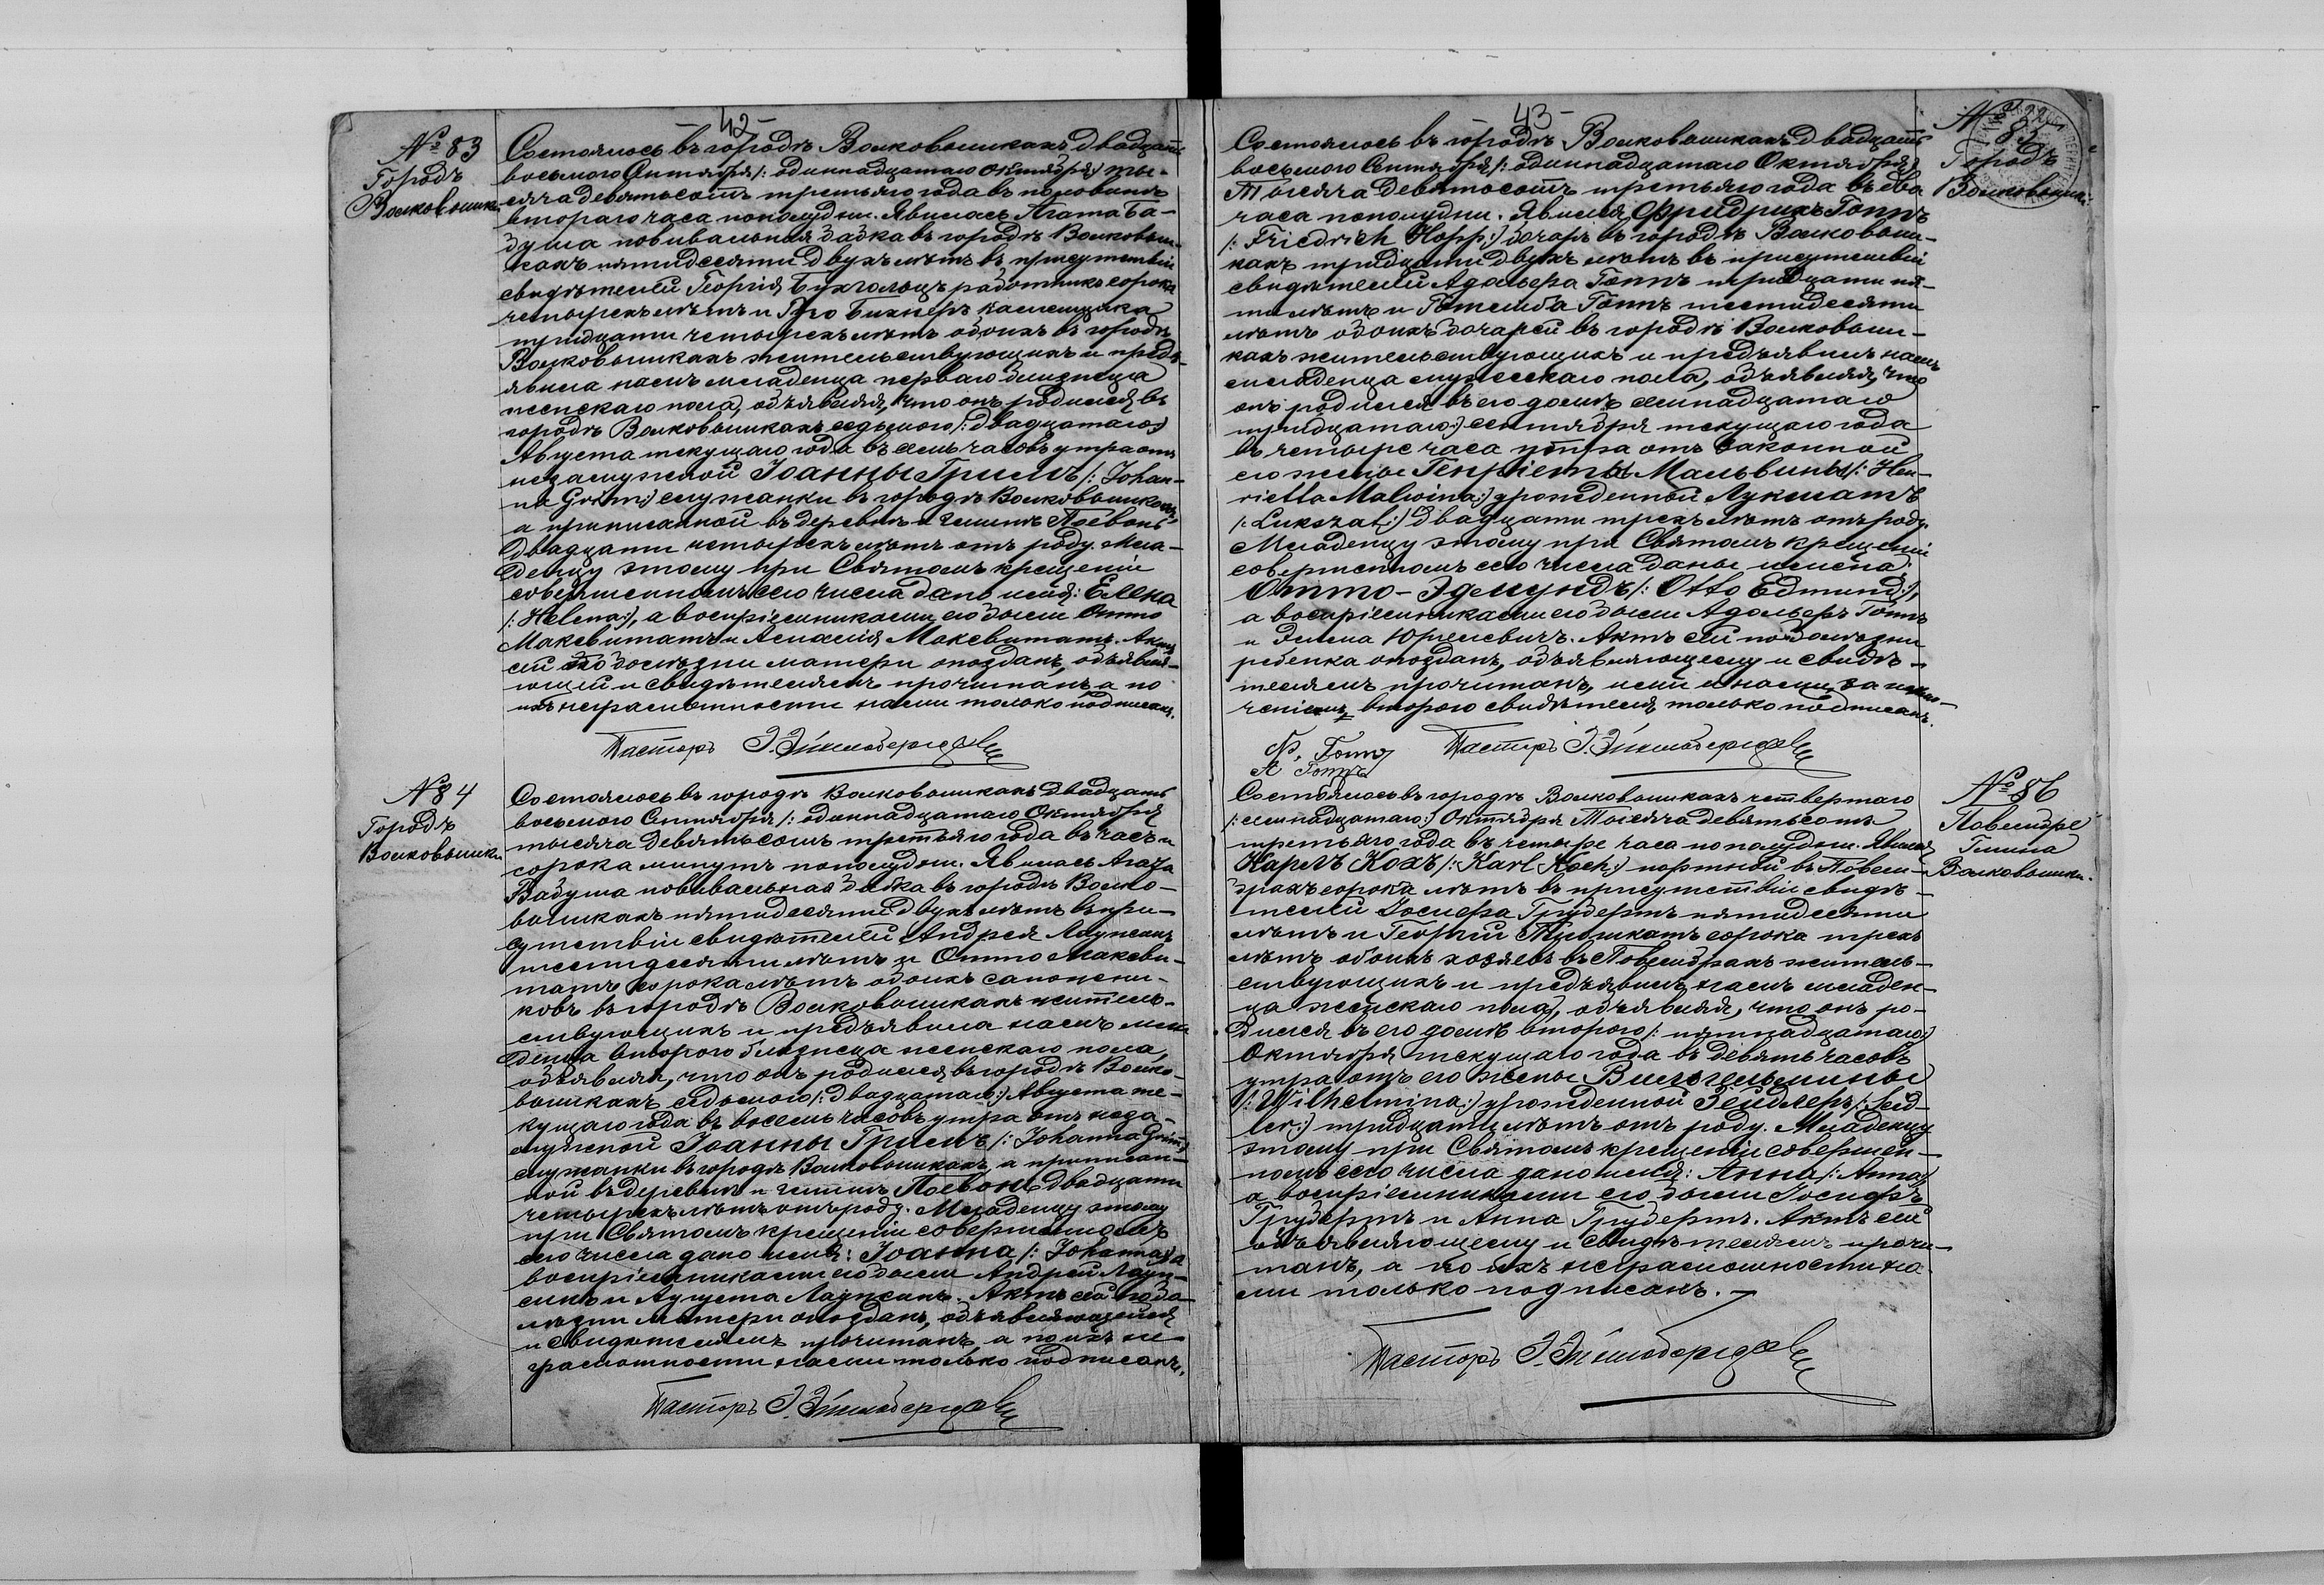 42
№ 83
Городъ
Волковышки
Состоялось въ городѣ Волковышкахъ двадцать
восьмого Сентября /: одиннадцатаго Октября :/ ты-
сяча девятьсотъ третьяго года въ половинѣ
второго часа пополудни. Явилась Агата Ба-
душа повивальная бабка въ городѣ Волковыш-
кахъ пятидесяти двухъ лѣтъ въ присутствіи
свидѣтелей Георгія Бухгольцъ работника сорока
четырехъ лѣтъ и Бихнеръ каменщика
тридцати четырехъ лѣтъ обоихъ въ городѣ
Волковышкахъ жительствующихъ и предъ-
явила намъ младенца перваго близнеца
женскаго пола, объявляя, что онъ родился въ
городѣ Волковышкахъ седьмого /: двадцатаго :/
Августа текущаго года въ семь часовъ утра отъ
незамужной Іоанны Гримъ /: Johan-
na Grimm :/ служанки въ городѣ Волковышкахъ,
а приписанной въ деревнѣ и гминѣ Поевонь
двадцати четырехъ лѣтъ отъ роду. Мла-
денцу этому при Святомъ крещеніи
совершенномъ сего числа дано имя: Елена
/: Helena :/, а воспріемниками его были Отто
Максвитатъ и Амалія Максвитатъ. Актъ
сей по болѣзни матери опозданъ, объявля-
ющей и свидѣтелямъ прочитанъ, а по
ихъ неграмотности нами только подписанъ.
Пасторъ
№ 84
Городъ
Волковышки
Состоялось въ городѣ Волковышкахъ двадцать
восьмого Сентября /: одиннадцатаго Октября
тысяча девятьсотъ третьяго года въ часъ и
сорока минутъ пополудни. Явилась Агата
Бадуша повивальная бабка въ городѣ Волко-
вышкахъ пятидесяти двухъ лѣтъ въ при-
сутствіи свидѣтелей Андрея Лаужемъ
шестидесяти лѣтъ и Отто Максви-
татъ сорока лѣтъ обоихъ сапожни-
ковъ въ городѣ Волковышкахъ житель-
ствующихъ и предъявила намъ мла-
денца второго близнеца женскаго пола,
объявляя, что онъ родился въ городѣ Волко-
вышкахъ седьмого /: двадцатаго :/ Августа те-
кущаго года въ восемь часовъ утра отъ неза-
мужной Іоанны Гримъ /: Johanna Grimm :/
служанки въ городѣ Волковышкахъ, а приписан-
ной въ деревнѣ и гминѣ Поевонь двадцати
четырехъ лѣтъ отъ роду. Младенцу этому
при Святомъ крещеніи совершенномъ
сего числа дано имя: Іоанна /: Johanna :/, а
воспріемниками его были Андрей
и Августа. Актъ сей по бо-
лѣзни матери опозданъ, объявляющей
и свидѣтелямъ прочитанъ, а по ихъ не-
грамотности нами только подписанъ.
Пасторъ
43
№
85
Городъ
Волковышки
Состоялось въ городѣ Волковышкахъ двадцать
восьмого Сентября /: одиннадцатаго Октября :/
Тысяча девятьсотъ третьяго года въ два
часа пополудни. Явился Фридрихъ Гоппъ
/: Friedrich Hopp :/ бочаръ въ городѣ Волковыш-
кахъ тридцати двухъ лѣтъ въ присутствіи
свидѣтелей Адольфа Гоппъ тридцати пя-
ти лѣтъ и Готлиба Гоппъ шестидесяти
лѣтъ обоихъ бочарей въ городѣ Волковыш-
кахъ жительствующихъ и предъявилъ намъ
младенца мужескаго пола, объявляя, что
онъ родился въ его домѣ семнадцатаго
тридцатаго :/ сентября текущаго года
въ четыре часа утра отъ законной
его жены Генріеты Мальвины /: Hen-
rietta Malwina :/ урожденной Лукшатъ
/: Lukszat :/ двадцати трехъ лѣтъ отъ роду.
Младенцу этому при Святомъ крещеніи
совершенномъ сего числа даны имена:
Отто-Эдмундъ /: Otto Edmund :/,
а воспріемниками его были Адольфъ Гоппъ
и Юркевичъ. Актъ сей по болѣзни
ребенка опозданъ, объявляющему и свидѣ-
телямъ прочитанъ, ими и нами, за исклю-
ченіемъ второго свидѣтеля, только подписанъ.
Гоппъ
А Гоппъ
Пасторъ
№ 86
Гмина
Волковышки.
Состоялось въ городѣ Волковышкахъ четвертаго
/: семнадцатаго :/ Октября Тысяча девятьсотъ
третьяго года въ четыре часа пополудни. Явился
Карлъ Кохъ /: Karl Koch :/ портной въ Повем-
брахъ сорока лѣтъ въ присутствіи свидѣ-
телей Іосифа Грубертъ пятидесяти
лѣтъ и Георгій сорока трехъ
лѣтъ обоихъ хозяевъ въ Повембрахъ житель-
ствующихъ и предъявилъ намъ младен-
ца женскаго пола, объявляя, что онъ ро-
дился въ его домѣ второго /: пятнадцатаго :/
Октября текущаго года въ девять часовъ
утра отъ его жены Вильгельмины
/: Wilhelmina :/ урожденной Зейдлеръ /: Seid-
ler :/ тридцати лѣтъ отъ роду. Младенцу
этому при Святомъ крещеніи совершен-
номъ сего числа дано имя: Анна /: Anna :/
а воспріемниками его были Іосифъ
Грубертъ и Анна Грубертъ. Актъ сей
объявляющему и свидѣтелямъ прочи-
танъ, а по ихъ неграмотности на-
ми только подписанъ.
Пасторъ